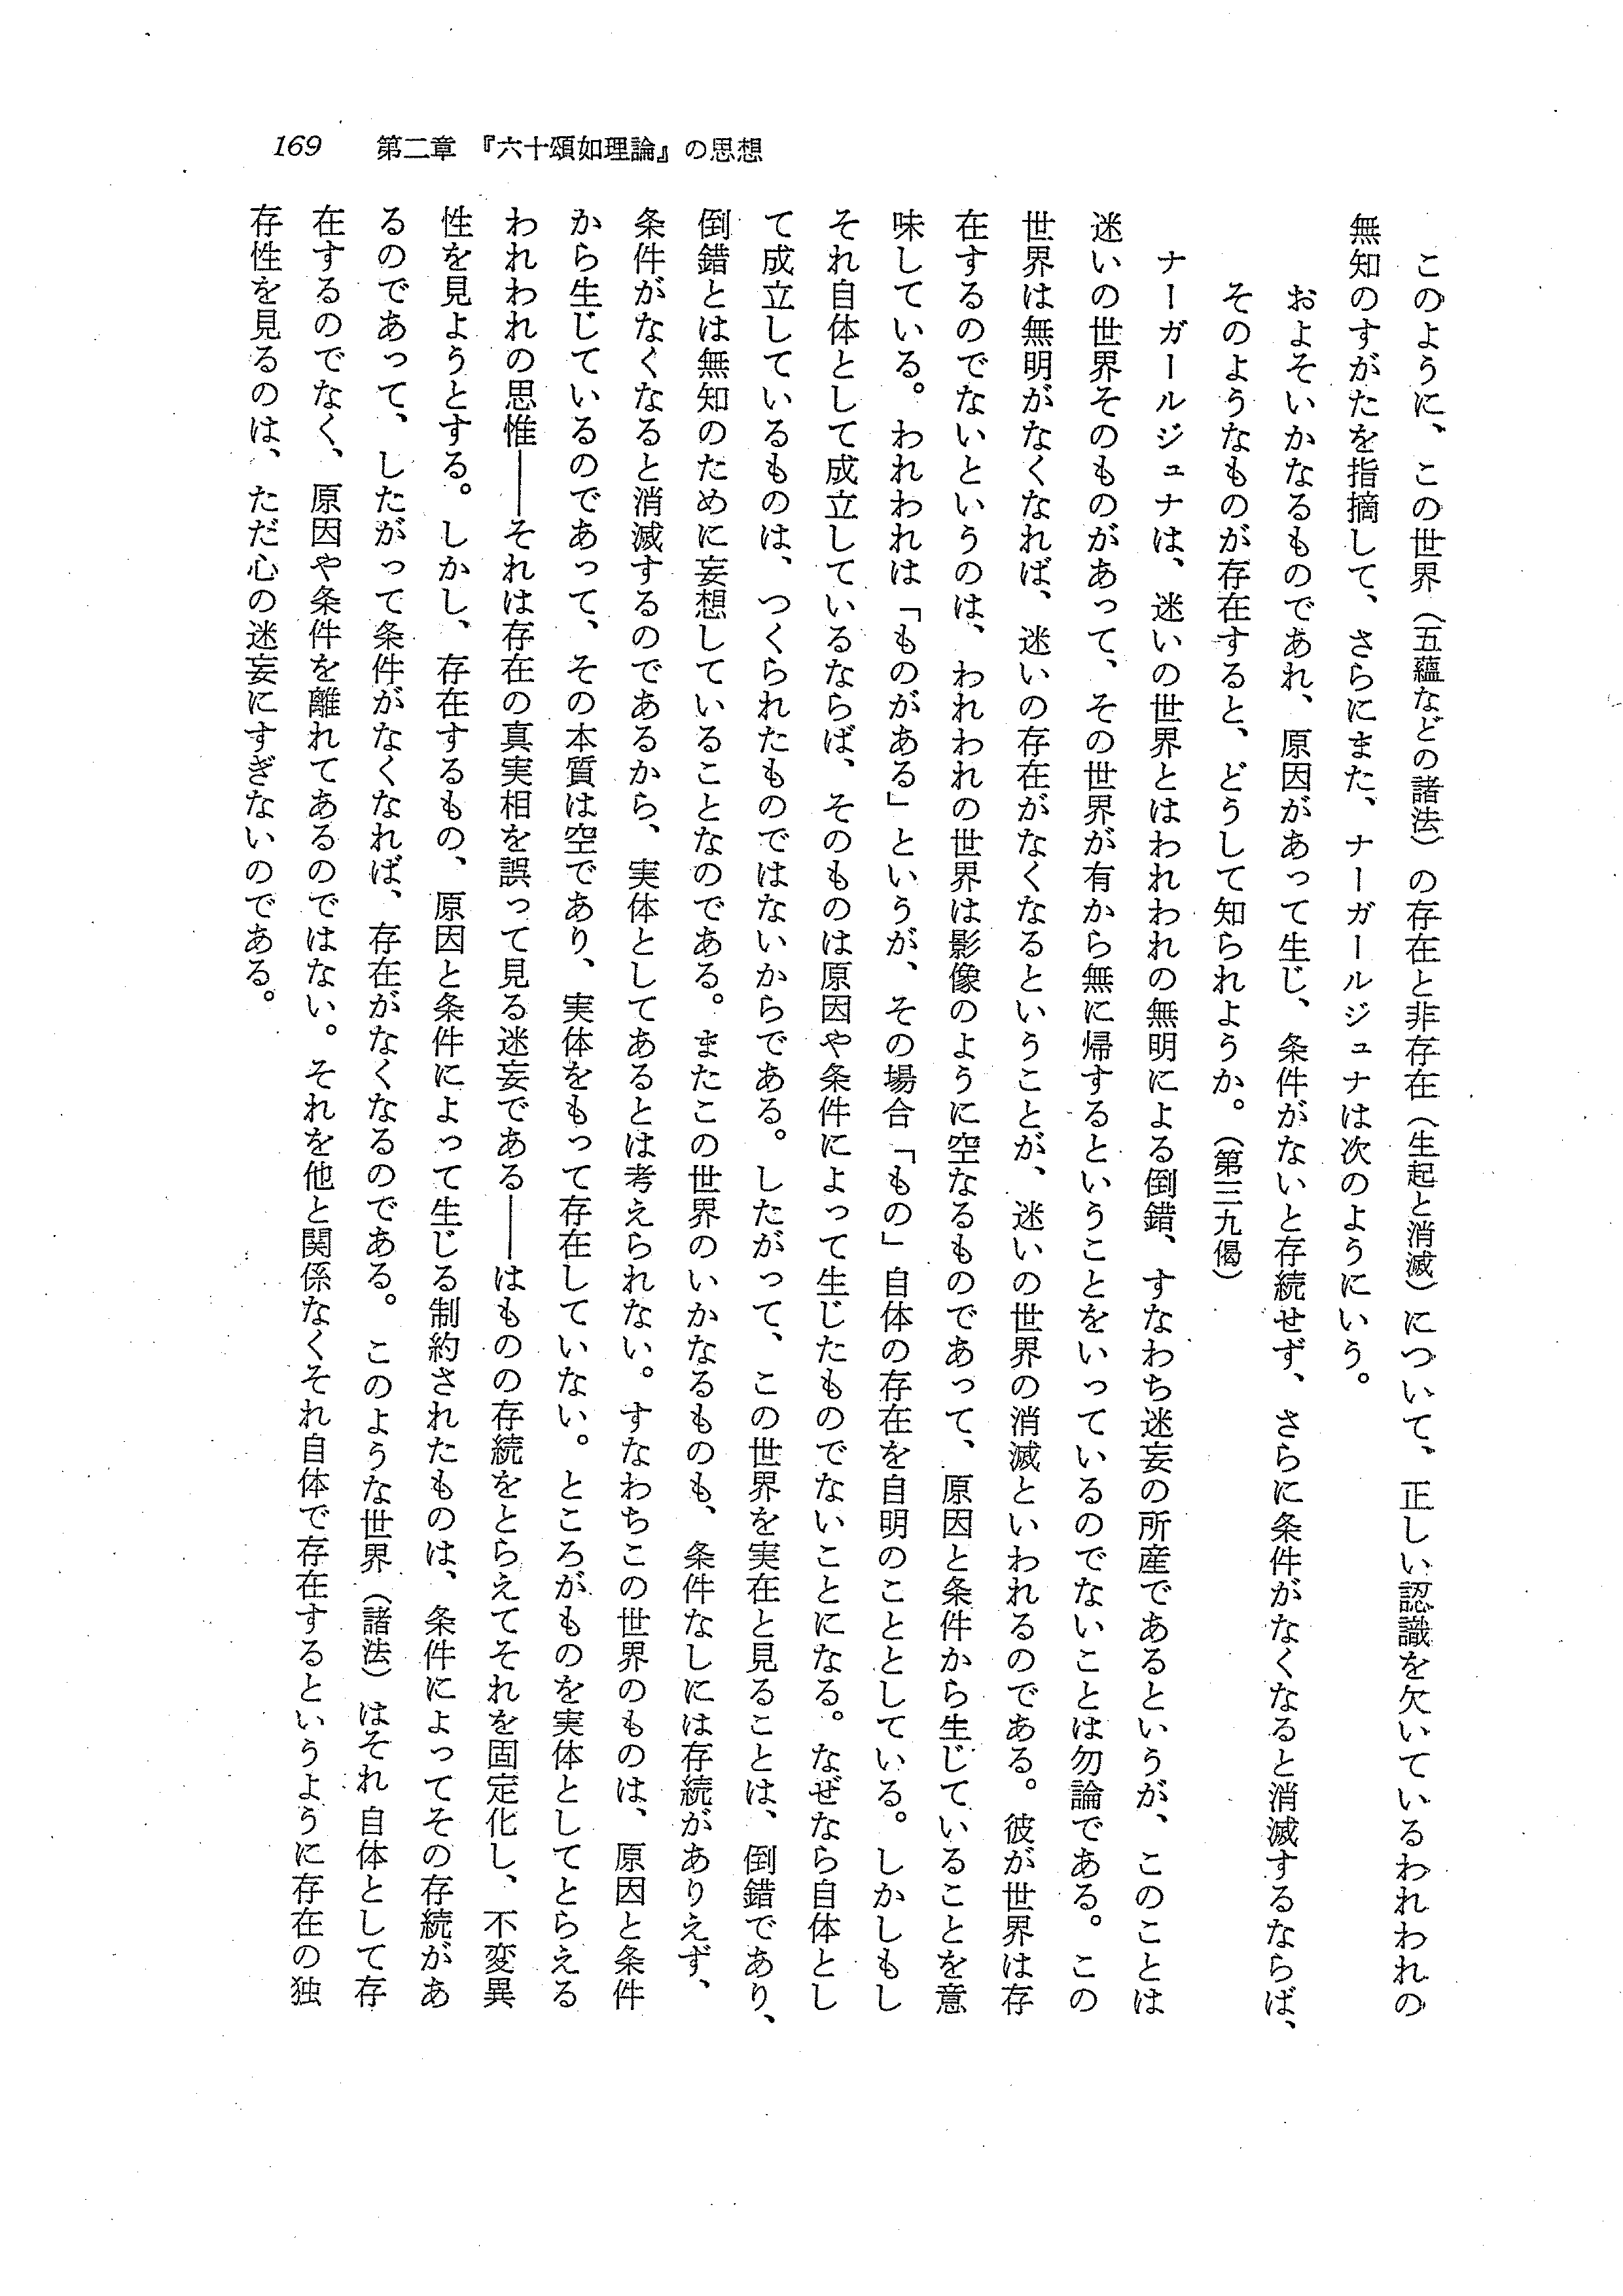 169　第二章　『六十頌如理論』の思想
このように、この世界（五蘊などの諸法）の存在と非存在（生起と消滅）について、正しい認識を欠いているわれわれの
無知のすがたを指摘して、さらにまた、ナーガールジュナは次のようにいう。
およそいかなるものであれ、原因があって生じ、条件がないと存続せず、さらに条件がなくなると消滅するならば、
そのようなものが存在すると、どうして知られようか。（第三九偈）
ナーガールジュナは、迷いの世界とはわれわれの無明による倒錯、すなわち迷妄の所産であるというが、このことは
迷いの世界そのものがあって、その世界が有から無に帰するということをいっているのでないことは勿論である。この
世界は無明がなくなれば、迷いの存在がなくなるということが、迷いの世界の消滅といわれるのである。彼が世界は存
在するのでないというのは、われわれの世界は影像のように空なるものであって、原因と条件から生じていることを意
味している。われわれは「ものがある」というが、その場合「もの」自体の存在を自明のこととしている。しかしもし
それ自体として成立しているならば、そのものは原因や条件によって生じたものでないことになる。なぜなら自体とし
て成立しているものは、つくられたものではないからである。したがって、この世界を実在と見ることは、倒錯であり、
倒錯とは無知のために妄想していることなのである。またこの世界のいかなるものも、条件なしには存続がありえず、
条件がなくなると消滅するのであるから、実体としてあるとは考えられない。すなわちこの世界のものは、原因と条件
から生じているのであって、その本質は空であり、実体をもって存在していない。ところがものを実体としてとらえる
われわれの思惟――それは存在の真実相を誤って見る迷妄である――はものの存続をとらえてそれを固定化し、不変異
性を見ようとする。しかし、存在するもの、原因と条件によって生じる制約されたものは、条件によってその存続があ
るのであって、したがって条件がなくなれば、存在がなくなるのである。このような世界（諸法）はそれ自体として存
在するのでなく、原因や条件を離れてあるのではない。それを他と関係なくそれ自体で存在するというように存在の独
存性を見るのは、ただ心の迷妄にすぎないのである。